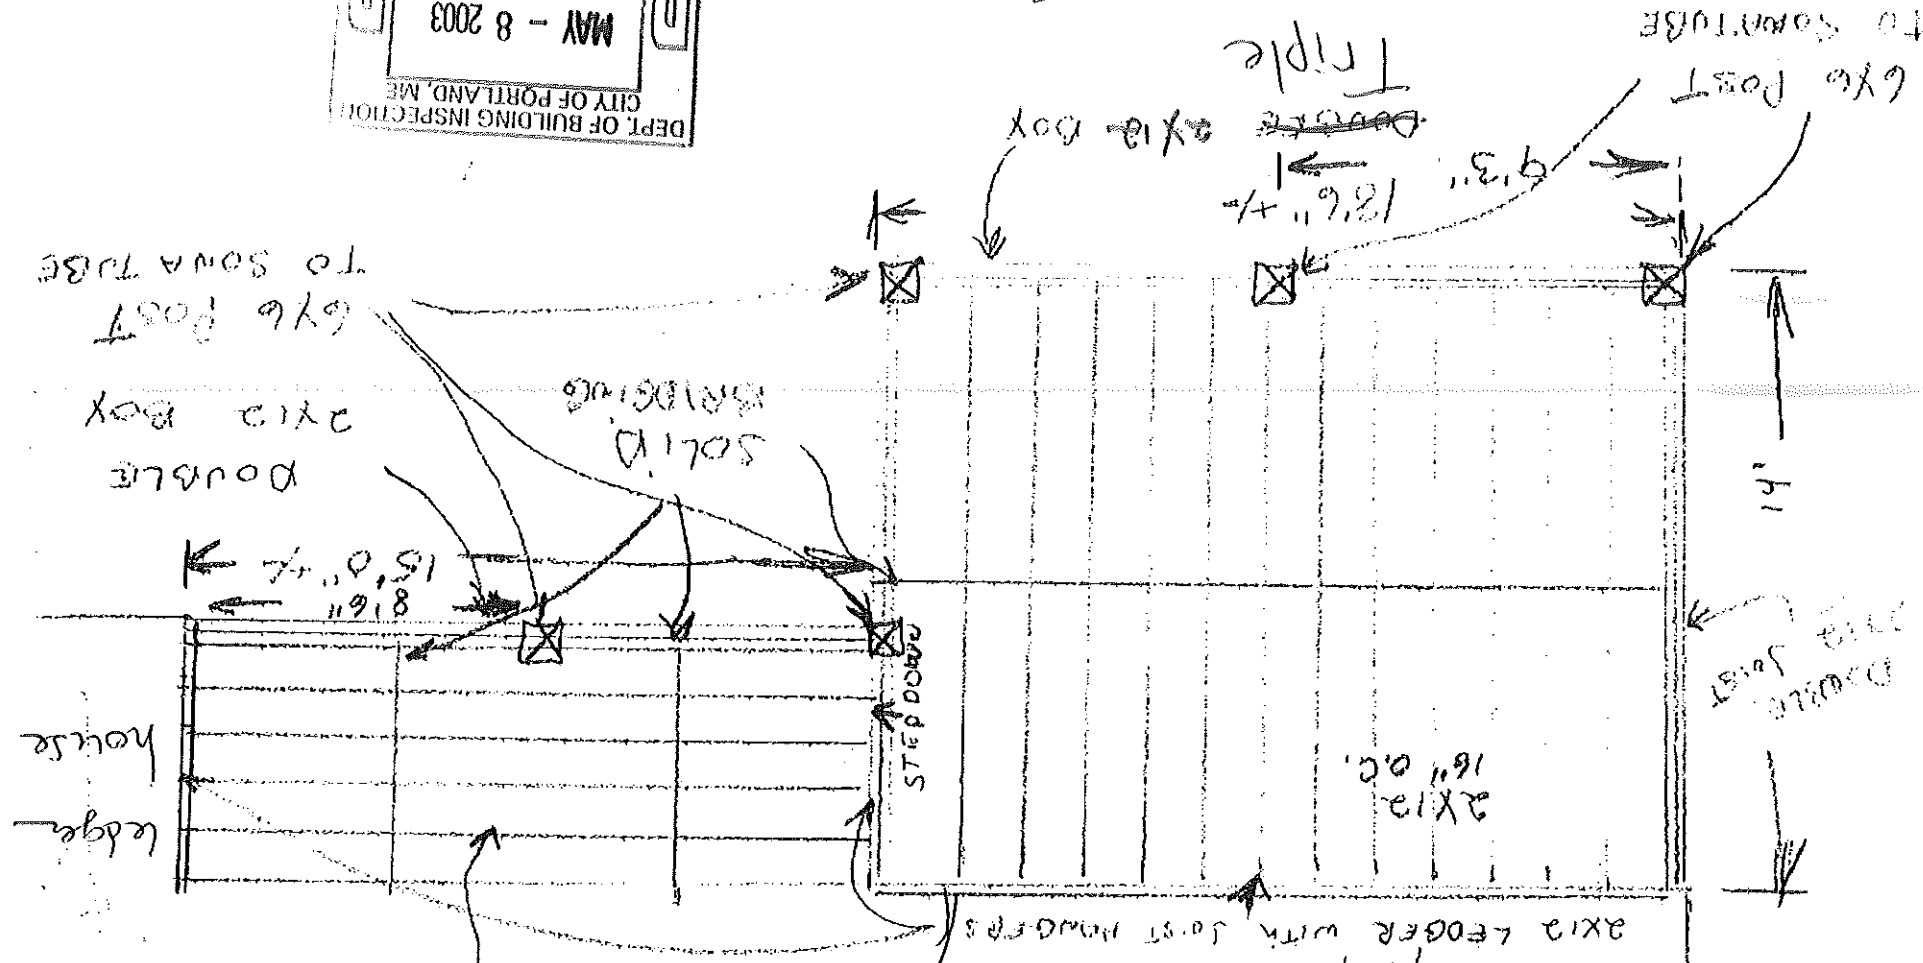 2X12 LEDGER WITH JOIST HANGERS
ledger
house
2X12
16" O.C.
STEP DOWN
DOUBLE
JOIST
2X12
8'6"
15'0" +/-
14"
DOUBLE
2X12 BOX
SOLID
BRIDGING
6X6 POST
TO SONATUBE
18'6" +/-
9'3"
DOUBLE 2X12 BOX
Triple
6X6 POST
TO SONATUBE
DEPT. OF BUILDING INSPECTION
CITY OF PORTLAND, ME
MAY - 8 2003